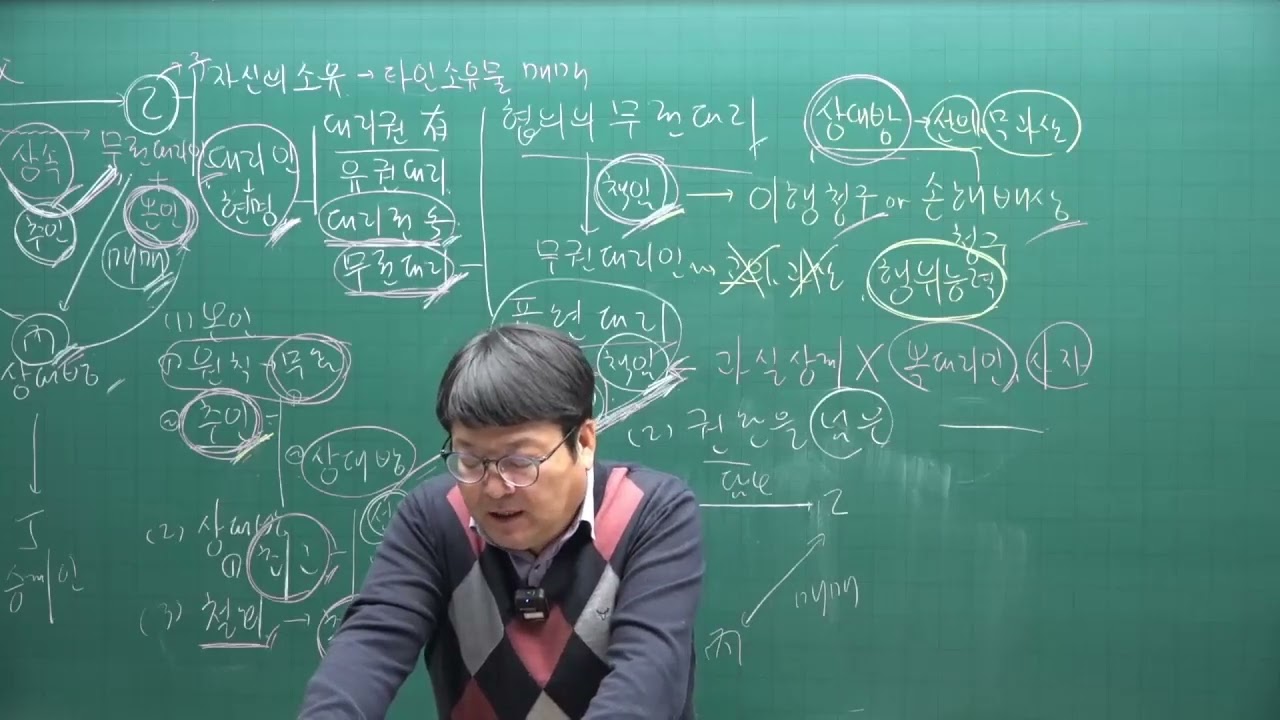 乙
자신의 소유 → 타인소유물 매매
상속
추인
무권대리인
+
본인
매매
대리인
+
현명
대리권 有
유권대리
대리권 남용
무권대리
협의의 무권대리
책임 → 이행청구 or 손해배상
청구
상대방 → 선의 무과실
무권대리인 고의, 과실 행위능력
표현대리
책임
과실상계 X 복대리인, 사자
(2) 권한을 넘은
담보
乙
매매
丙
丙
상대방
(1) 본인
① 원칙 → 무효
② 추인
상대방
(2) 상대방
①
(3) 철회 →